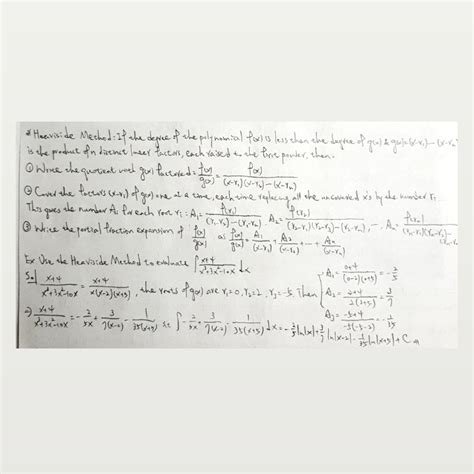 * Heaviside Method: If the degree of the polynomial f(x) is less than the degree of g(x) & g(x)=(x-r₁)...(x-rₙ)
is the product of n distinct linear factors, each raised to the first power, then:
① Write the quotient with g(x) factored: f(x)/g(x) = f(x)/((x-r₁)(x-r₂)...(x-rₙ))
② Cover the factors (x-rᵢ) of g(x) one at a time, each time, replacing all the uncovered x's by the number rᵢ.
This gives the number Aᵢ for each root rᵢ: A₁ = f(r₁)/((r₁-r₂)...(r₁-rₙ)), A₂ = f(r₂)/((r₂-r₁)(r₂-r₃)...(r₂-rₙ)), ..., Aₙ = f(rₙ)/((rₙ-r₁)(rₙ-r₂)...
③ Write the partial fraction expansion of f(x)/g(x) as f(x)/g(x) = A₁/(x-r₁) + A₂/(x-r₂) + ... + Aₙ/(x-rₙ)
Ex. Use the Heaviside Method to evaluate ∫ (x+4)/(x³+3x²-10x) dx
Sol (x+4)/(x³+3x²-10x) = (x+4)/(x(x-2)(x+5)), the roots of g(x) are r₁=0, r₂=2, r₃=-5. Then { A₁ = (0+4)/((0-2)(0+5)) = -2/5
A₂ = (2+4)/(2(2+5)) = 3/7
A₃ = (-5+4)/(-5(-5-2)) = -1/35
⇒ (x+4)/(x³+3x²-10x) = -2/(5x) + 3/(7(x-2)) - 1/(35(x+5)) so ∫ -2/(5x) + 3/(7(x-2)) - 1/(35(x+5)) dx = -2/5 ln|x| + 3/7 ln|x-2| - 1/35 ln|x+5| + C